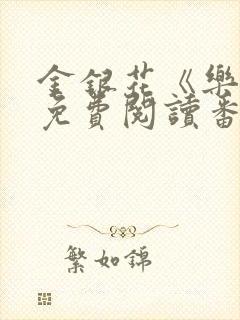 金銀花《樂
免費閱讀番
繁如錦